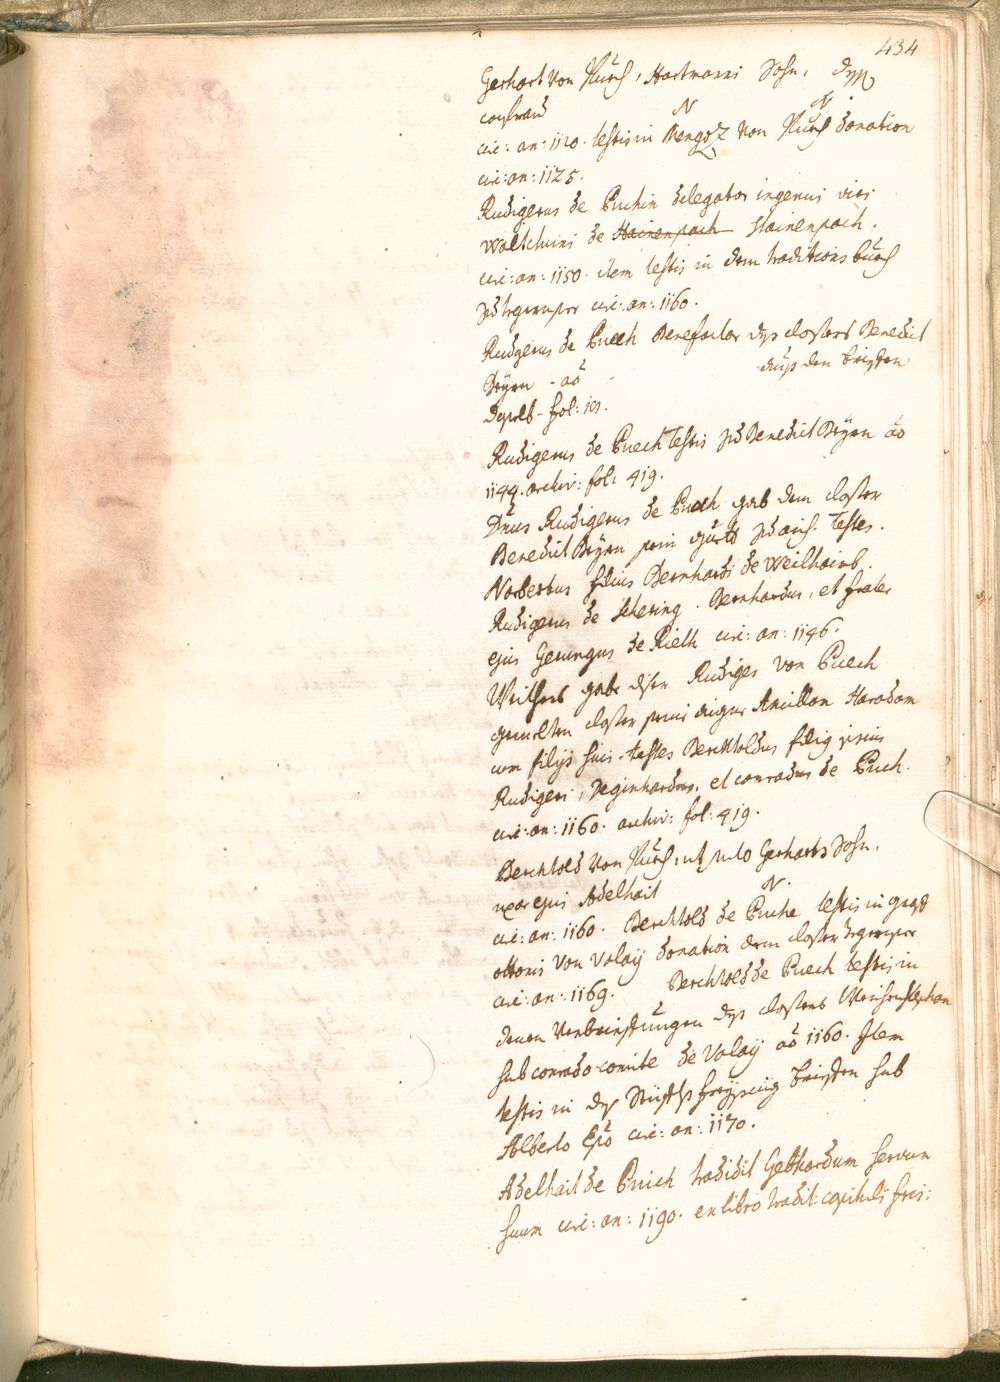 434
Gerhart von Puech, Hartmani Sohn,
N N
circ: an: 1120. testis in Mengotz von Puech donation
circ: an: 1125.
Rudigerus de Puchin delegator ingenui viri
Waltchuini de Hainenpach Hainenpach.
circ: an: 1150. item testis in dem traditions buech
zu tegernsee circ: an: 1160.
Rudgerus de Puech Benefactor dess closters Benedict
Beÿrn - aō auss den brieffen
fol: 101.
Rudigerus de Puech testis zu Benedict Beÿrn aō
1144. archiv: fol: 419.
Dnus Rudigerus de Puech gab dem closter
Benedict Beÿrn sein guett zu testes.
Norbertus filius Bernhardi de Weilhaimb.
Rudigerus de Schering. Bernhardus, et frater
ejus Gerungus de Rieth circ: an: 1146.
Weithers gabe diser Rudiger von Puech
gemelten closter sein aigne Ancillam Haradam
cum filijs suis. testes Berchtoldus filius
Rudigeri, Meginhardus, et conradus de Puch.
circ: an: 1160. archiv: fol: 419.
Berchtold von Puech, ut puto Gerharts Sohn,
uxor ejus Adelhait N.
circ: an: 1160. Berchtold de Puche testis in
ottonis von Valaÿ donation dem closter tegernsee
circ: an: 1169. Berchtold de Puech testis in
denen dess closters Weichenstephan
sub conrado comite de Valaÿ aō 1160. Item
testis in brieffen sub
Alberto Epō circ: an: 1170.
Adelhait de Puich tradidit Gebhardum servum
suum circ: an: 1190. ex libro tradit: capituli fris: